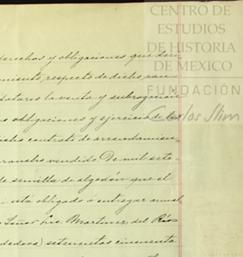 CENTRO DE
ESTUDIOS
DE HISTORIA
DE MEXICO
FUNDACIÓN
Carlos Slim
derechos y obligaciones que
respecto de dicho
la venta y subrogacion
obligaciones y ejercicio de los
contrato de arrendamien
rancho vendido De mil sete
de semilla de algodon que el
esta obligado a entregar anual
Señor Martinez del Rio
setecientos cincuenta